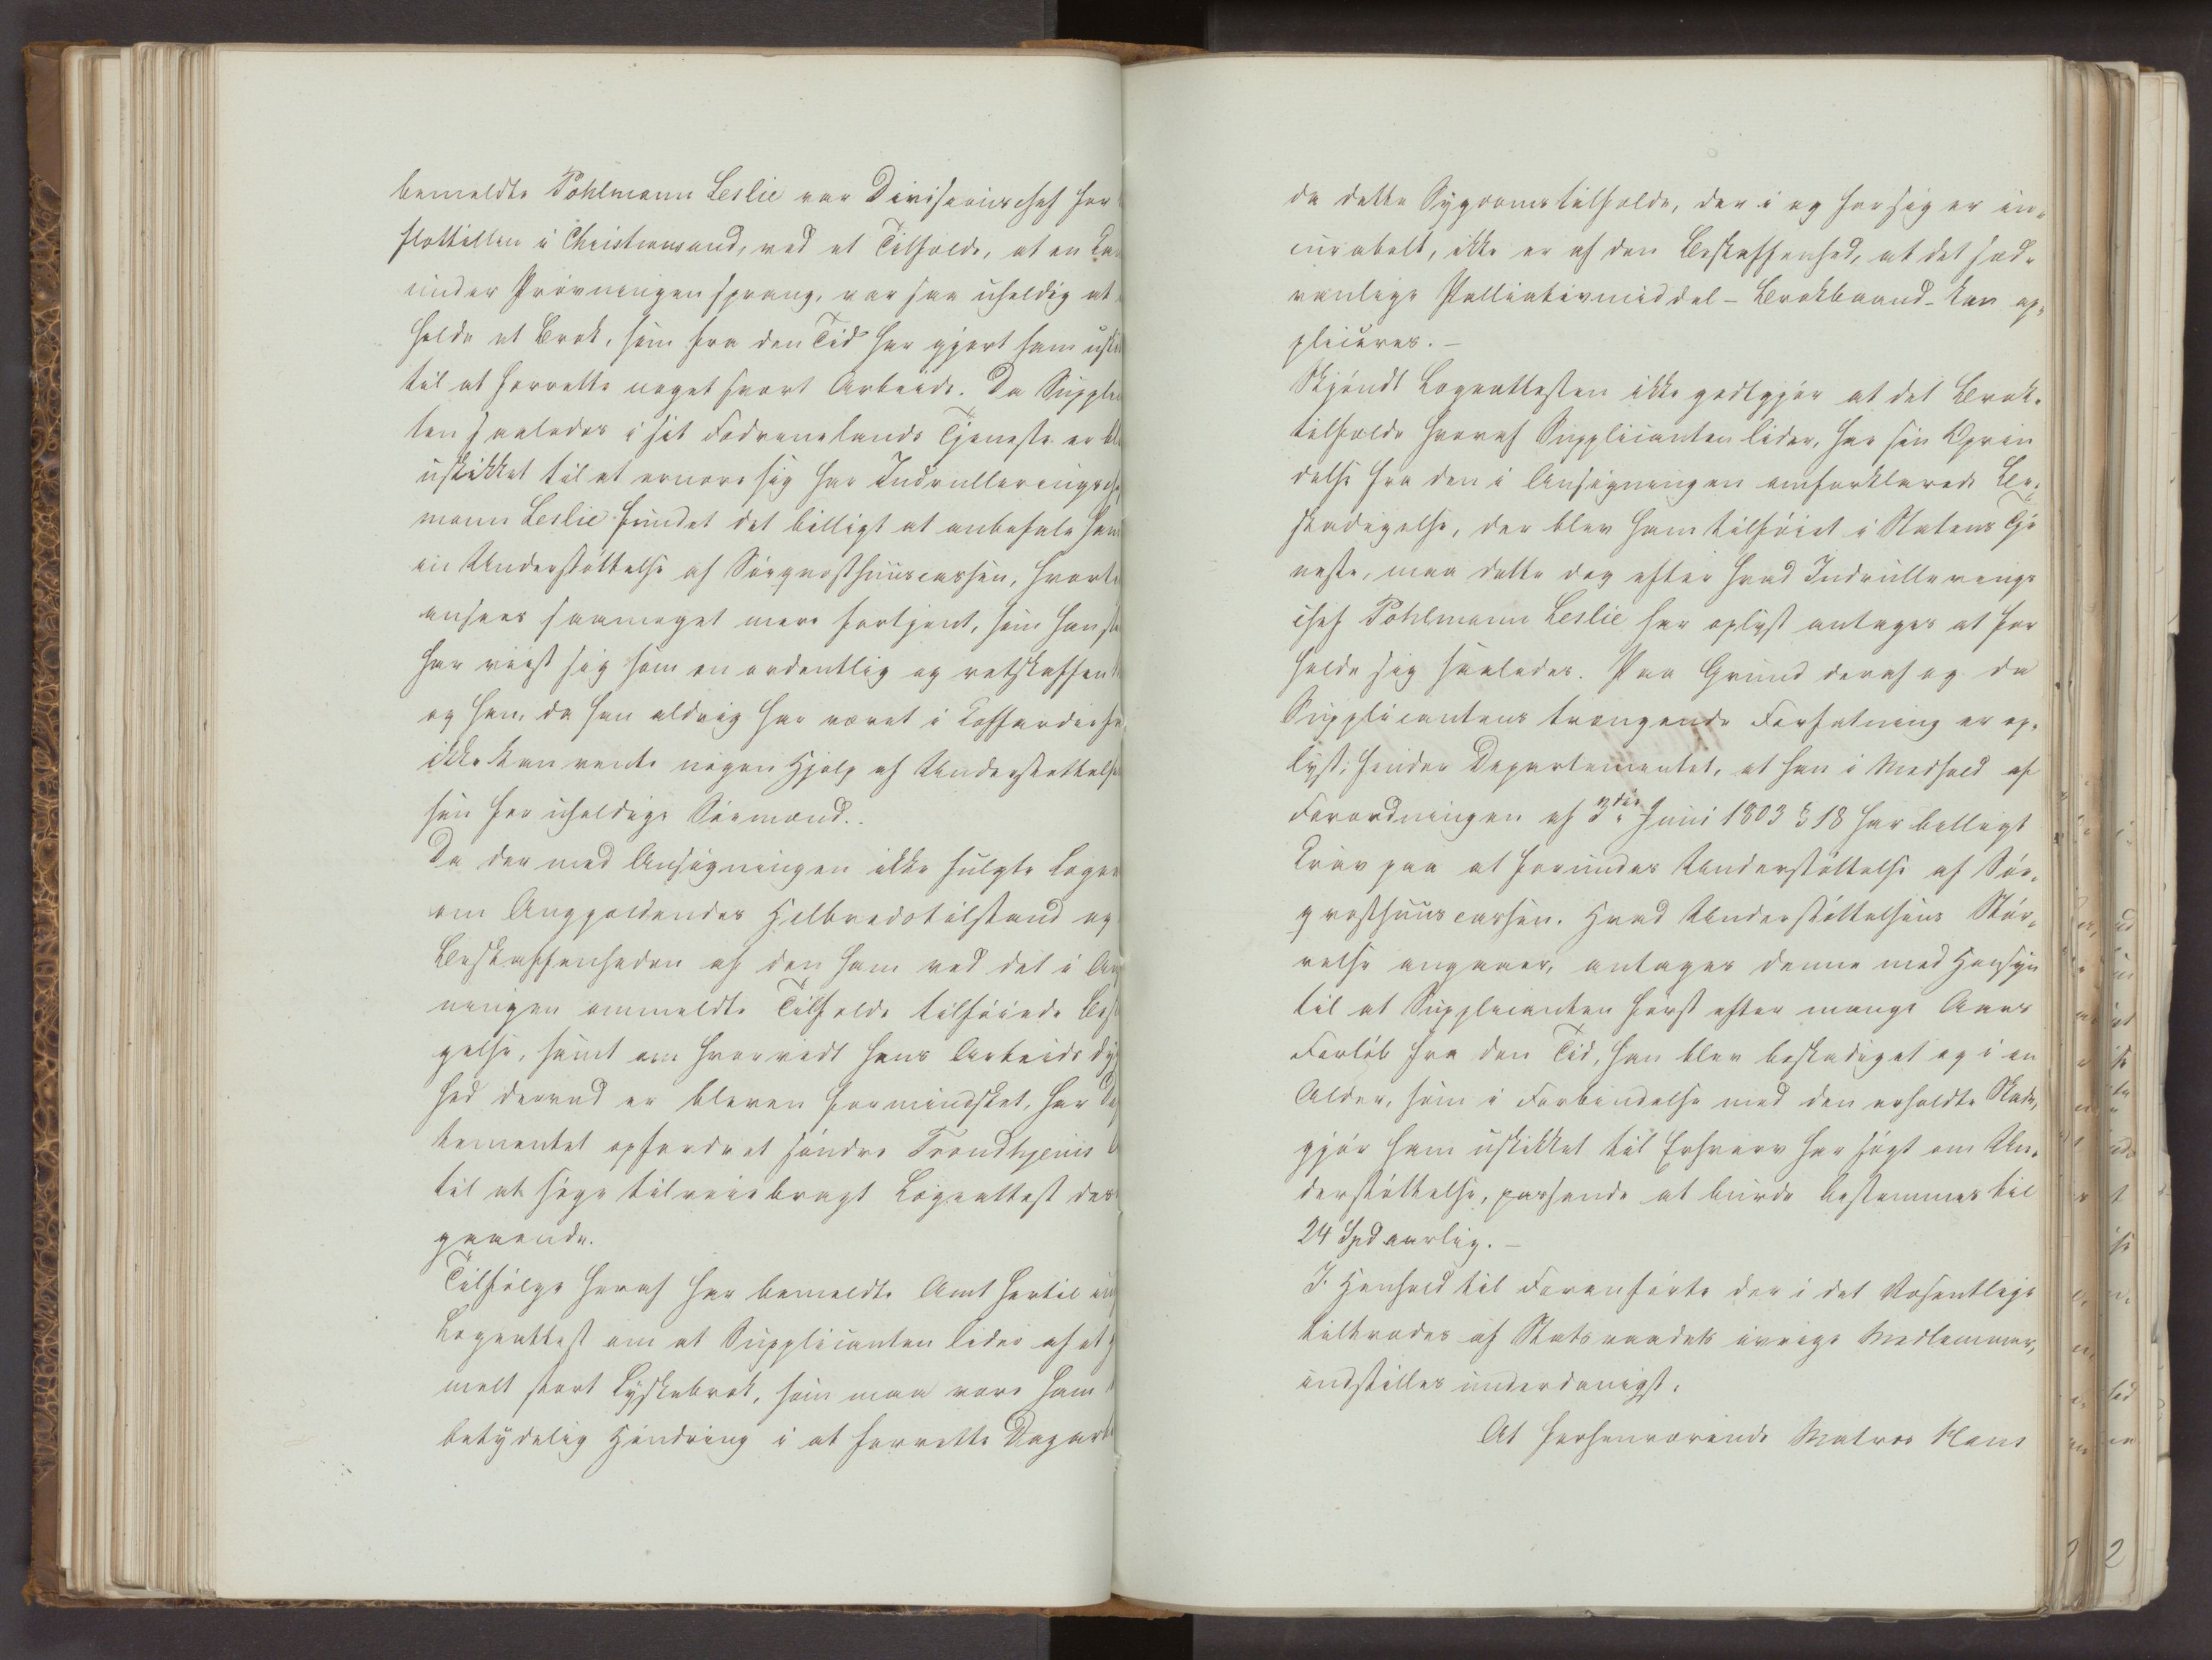 bemeldte Pohlmann Leslie var Divisionschef for
flottillen i Christiansand, ved et Tilfælde, at en Ca
under Prøvningen sprang, var saa uheldig at
holde et Brok, som fra den Tid har gjort ham uski
til at forrette noget svart Arbeide. Da Supplic
ten saaledes i sit Fædrenelands Tjeneste er ble
uskikket til at ernære sig har Indrulleringsche
mann Leslie fundet det billigt at anbefale ham
en Understøttelse af Søeqvæsthuuscassen, hvortil
ansees saameget mere fortjent, som han
har viist sig som en ordentlig og retskaffen
og han, da han aldrig har været i Coffardiefa
ikke kan vente nogen Hjelp af Understøttelses
sen for uheldige Sømænd.
Da der med Ansøgningen ikke fulgte Læge
om Angjældendes Helbredstilstand og
Beskaffenheden af den ham ved det i An
ningen ommeldte Tilfælde tilføiede Besk
gelse, samt om hvorvidt hans Arbeidsdyg
hed derved er bleven formindsket, har Dep
tementet opfordret søndre Trondhjems
til at søge tilveiebragt Lægeattest des
gaaende.
Tilfølge heraf har bemeldte Amt hertil ind
Lægeattest om at Supplicanten lider af et
melt stort Lyskebrok, som maa være ham
betydelig Hindring i at forrette Dagarbe
da dette Sygdomstilfælde, der i og for sig er in-
curabelt, ikke er af den Beskaffenhed, at det sæd-
vanlige Palliativmiddel - Brokbaand - kan ap-
pliceres. -
Skjøndt Lægeattesten ikke godtgjør at det Brok-
tilfælde hvoraf Supplicanten lider, har sin Oprin
delse fra den i Ansøgningen omforklarede Be-
skadigelse, der blev ham tilføiet i Statens Tje
neste, maa dette dog efter hvad Indrullerings
chef Pohlmann Leslie har oplyst antages at for
holde sig saaledes. Paa Grund deraf og da
Supplicantens trængende Forfatning er op-
lyst, finder Departementet, at han i Medhold af
Forordningen af 3die Juni 1803 § 18 har billigt
Krav paa at forundes Understøttelse af Søe-
qvæsthuuscassen. Hvad Understøttelsens Stør-
relse angaaer, antages denne med Hensyn
til at Supplicanten først efter mange Aars
Forløb fra den Tid, han blev beskadiget og i en
Alder, som i Forbindelse med den erholdte Skade,
gjør ham uskikket til Erhverv har søgt om Un-
derstøttelse, passende at burde bestemmes til
24 Spd aarlig. -
I Henhold til Foranførte der i det Væsentlige
tiltrædes af Statsraadets øvrige Medlemmer,
indstilles underdanigst:
At forhenværende Matros Hans